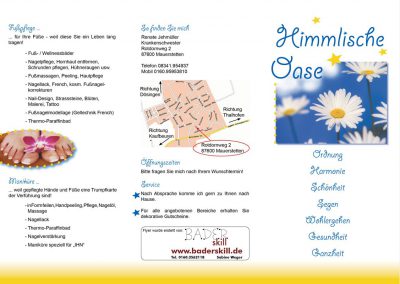 Fußpflege ...
... für Ihre Füße - weil diese Sie ein Leben lang
tragen!
- Fuß- / Wellnessbäder
- Nagelpflege, Hornhaut entfernen,
Schrunden pflegen, Hühneraugen usw.
- Fußmassagen, Peeling, Hautpflege
- Nagellack, French, kosm. Fußnagel-
korrekturen
- Nail-Design, Strasssteine, Bilder,
Malerei, Tattoo
- Fußnagelmodellage (Geltechnik French)
- Thermo-Paraffinbad
Maniküre ...
... weil gepflegte Hände und Füße eine Trumpfkarte
der Verführung sind!
-inFormfeilen,Handpeeling,Pflege,Nagelöl,
Massage
- Nagellack
- Thermo-Paraffinbad
- Nagelverstärkung
- Maniküre speziell für „IHN"
So finden Sie mich
Renate Jehmüller
Krankenschwester
Rotdornweg 2
87600 Mauerstetten
Telefon 08341.954837
Mobil 0160.95953810
Richtung
Dösingen
Richtung
Thalhofen
Richtung
Kaufbeuren
Rotdornweg 2
87600 Mauerstetten
Öffnungszeiten
Bitte fragen Sie mich nach Ihrem Wunschtermin!
Service
Nach Absprache komme ich gern zu Ihnen nach
Hause.
Für alle angebotenen Bereiche erhalten Sie
dekorative Gutscheine.
Flyer wurde erstellt von
BADER
skill
www.baderskill.de
Tel. 0160.5562118 Sabine Wager
Himmlische
Oase
Ordnung
Harmonie
Schönheit
Segen
Wohlergehen
Gesundheit
Ganzheit